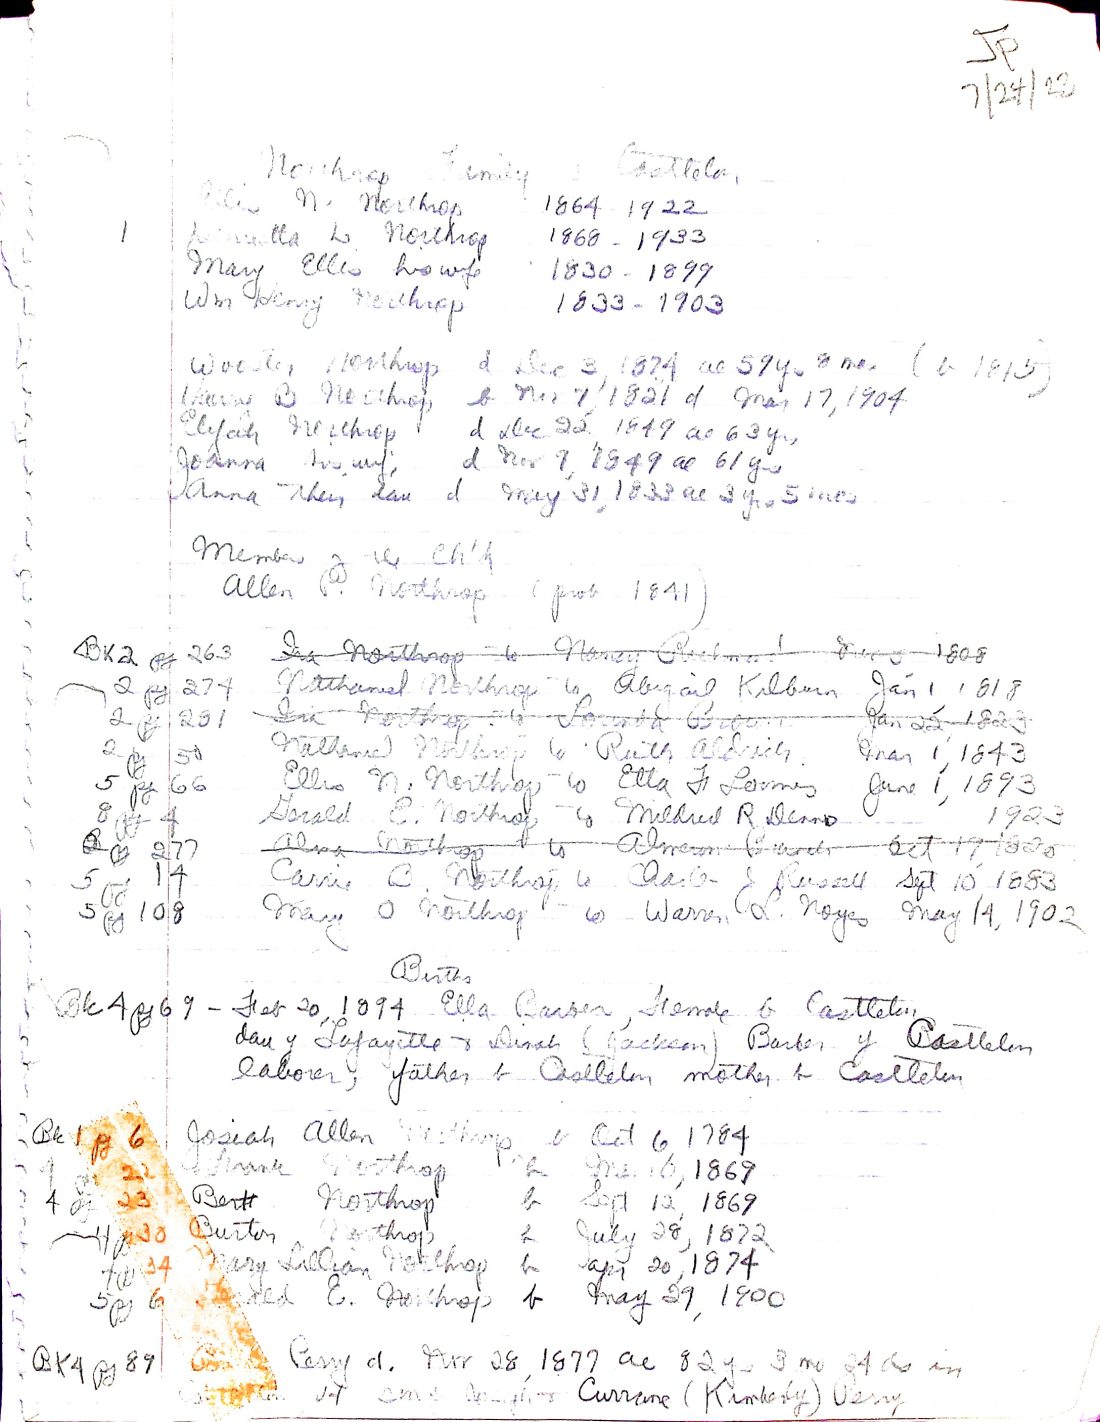 JP
7/24/22
Northrop Family Castleton
N. Northrop 1864-1922
1 L. Northrop 1868-1933
Mary Ellis his wife 1830-1899
Wm Henry Northrop 1833-1903
Wooster Northrop d Dec 3, 1874 ae 59 yrs 8 mos (b 1815)
B Northrop b Nov 7, 1821 d Mar 17, 1904
Elijah Northrop d Dec 22, 1849 ae 63 yrs
Joanna his wife d Nov 9, 1849 ae 61 yrs
Anna their dau d May 31, 1833 ae 3 yrs 5 mos
Member of the Ch'h
Allen P. Northrop (prob 1841)
BK2 pg 263 Ira Northrop to Nancy 1808
2 pg 274 Nathaniel Northrop to Abigail Kilburn Jan 1, 1818
2 pg 281 Ira Northrop to Lorinda Brown Jan 22, 1823
2 pg 50 Nathaniel Northrop to Ruth Aldrich Mar 1, 1843
5 pg 66 Ellis N. Northrop to Etta F Loomis June 1, 1893
8 pg 4 Gerald E. Northrop to Mildred R Denno 1923
2 pg 277 Alma Northrop to Oct 19
5 pg 14 Carrie B. Northrop to Charles J Russell Sept 10 1883
5 pg 108 Mary O Northrop to Warren L. Noyes May 14, 1902
Births
Bk 4 pg 69 - Feb 20, 1894 Ella Barber, Female b Castleton
dau of Lafayette & Dinah (Jackson) Barber of Castleton
laborer; father b Castleton mother b Castleton
Bk 1 pg 6 Josiah Allen Northrop b Oct 6, 1784
22 Frank Northrop b 1869
4 pg 23 Bert Northrop b Sept 12, 1869
4 pg 30 Burton Northrop b July 28, 1872
34 Mary Lillian Northrop b Apr 20, 1874
5 pg 6 Gerald E. Northrop b May 29, 1900
BK4 pg 89 Perry d. Nov 28, 1877 ae 82 yrs 3 mo 24 ds in
Currane (Kimberly) Perry